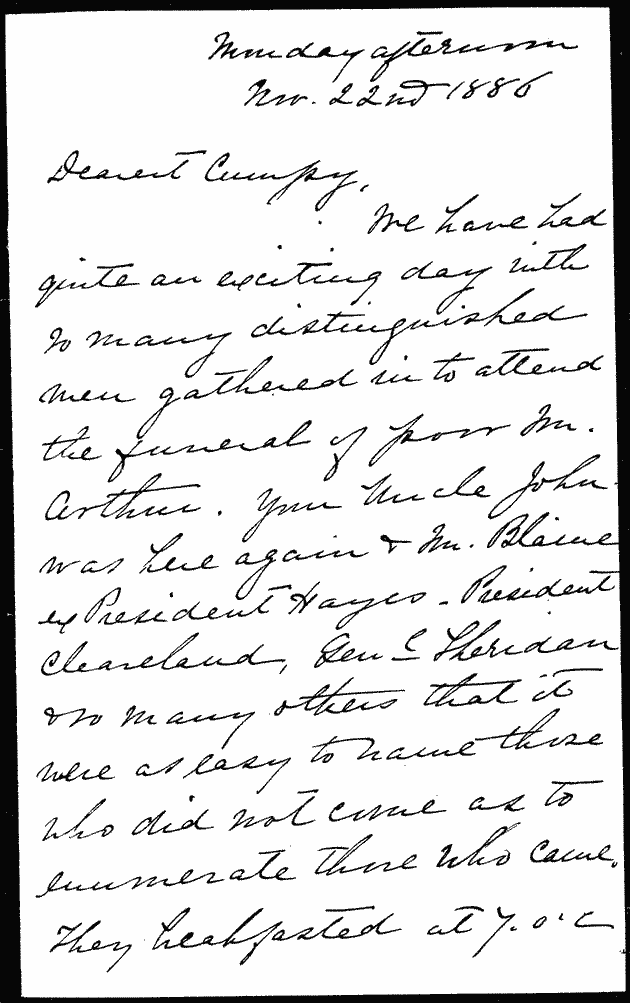 Monday afternoon
Nov. 22nd 1886
Dearest Cumpy,
We have had
quite an exciting day with
so many distinguished
men gathered in to attend
the funeral of poor Mr.
Arthur. Your Uncle John
was here again & Mr. Blaine
ex President Hayes - President
Cleaveland, Genl Sheridan
& so many others that it
were as easy to name those
who did not come as to
enumerate those who came.
They breakfasted at 7. o'c